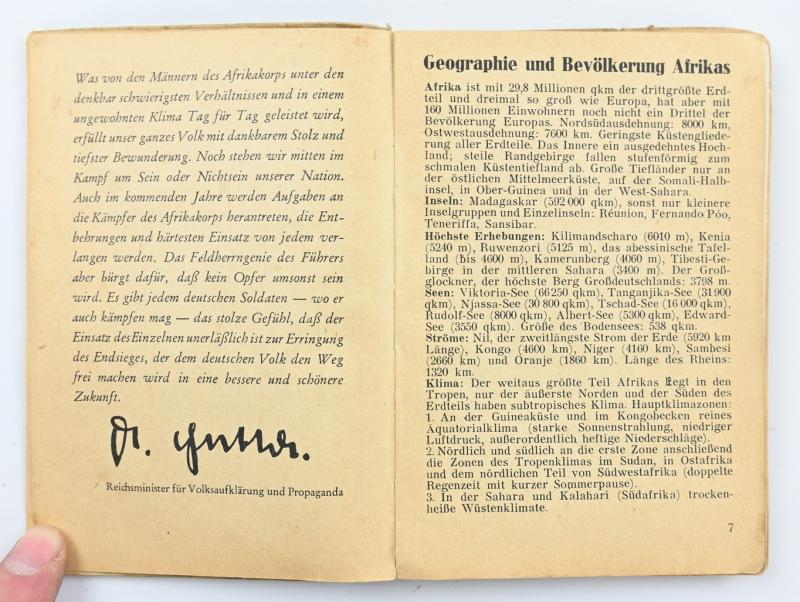 Was von den Männern des Afrikakorps unter den
denkbar schwierigsten Verhältnissen und in einem
ungewohnten Klima Tag für Tag geleistet wird,
erfüllt unser ganzes Volk mit dankbarem Stolz und
tiefster Bewunderung. Noch stehen wir mitten im
Kampf um Sein oder Nichtsein unserer Nation.
Auch im kommenden Jahre werden Aufgaben an
die Kämpfer des Afrikakorps herantreten, die Ent-
behrungen und härtesten Einsatz von jedem ver-
langen werden. Das Feldherrngenie des Führers
aber bürgt dafür, daß kein Opfer umsonst sein
wird. Es gibt jedem deutschen Soldaten — wo er
auch kämpfen mag — das stolze Gefühl, daß der
Einsatz des Einzelnen unerläßlich ist zur Erringung
des Endsieges, der dem deutschen Volk den Weg
frei machen wird in eine bessere und schönere
Zukunft.
Reichsminister für Volksaufklärung und Propaganda
Geographie und Bevölkerung Afrikas
Afrika ist mit 29,8 Millionen qkm der drittgrößte Erd-
teil und dreimal so groß wie Europa, hat aber mit
160 Millionen Einwohnern noch nicht ein Drittel der
Bevölkerung Europas. Nordsüdausdehnung: 8000 km,
Ostwestausdehnung: 7600 km. Geringste Küstengliede-
rung aller Erdteile. Das Innere ein ausgedehntes Hoch-
land; steile Randgebirge fallen stufenförmig zum
schmalen Küstentiefland ab. Große Tiefländer nur an
der östlichen Mittelmeerküste, auf der Somali-Halb-
insel, in Ober-Guinea und in der West-Sahara.
Inseln: Madagaskar (592 000 qkm), sonst nur kleinere
Inselgruppen und Einzelinseln: Réunion, Fernando Póo,
Teneriffa, Sansibar.
Höchste Erhebungen: Kilimandscharo (6010 m), Kenia
(5240 m), Ruwenzori (5125 m), das abessinische Tafel-
land (bis 4600 m), Kamerunberg (4060 m), Tibesti-Ge-
birge in der mittleren Sahara (3400 m). Der Groß-
glockner, der höchste Berg Großdeutschlands: 3798 m.
Seen: Viktoria-See (66 250 qkm), Tanganjika-See (31 900
qkm), Njassa-See (30 800 qkm), Tschad-See (16 000 qkm),
Rudolf-See (8000 qkm), Albert-See (5300 qkm), Edward-
See (3550 qkm). Größe des Bodensees: 538 qkm.
Ströme: Nil, der zweitlängste Strom der Erde (5920 km
Länge), Kongo (4600 km), Niger (4160 km), Sambesi
(2660 km) und Oranje (1860 km). Länge des Rheins:
1320 km.
Klima: Der weitaus größte Teil Afrikas liegt in den
Tropen, nur der äußerste Norden und der Süden des
Erdteils haben subtropisches Klima. Hauptklimazonen:
1. An der Guineaküste und im Kongobecken reines
Äquatorialklima (starke Sonnenstrahlung, niedriger
Luftdruck, außerordentlich heftige Niederschläge).
2. Nördlich und südlich an die erste Zone anschließend
die Zonen des Tropenklimas im Sudan, in Ostafrika
und dem nördlichen Teil von Südwestafrika (doppelte
Regenzeit mit kurzer Sommerpause).
3. In der Sahara und Kalahari (Südafrika) trocken-
heiße Wüstenklimate.
7